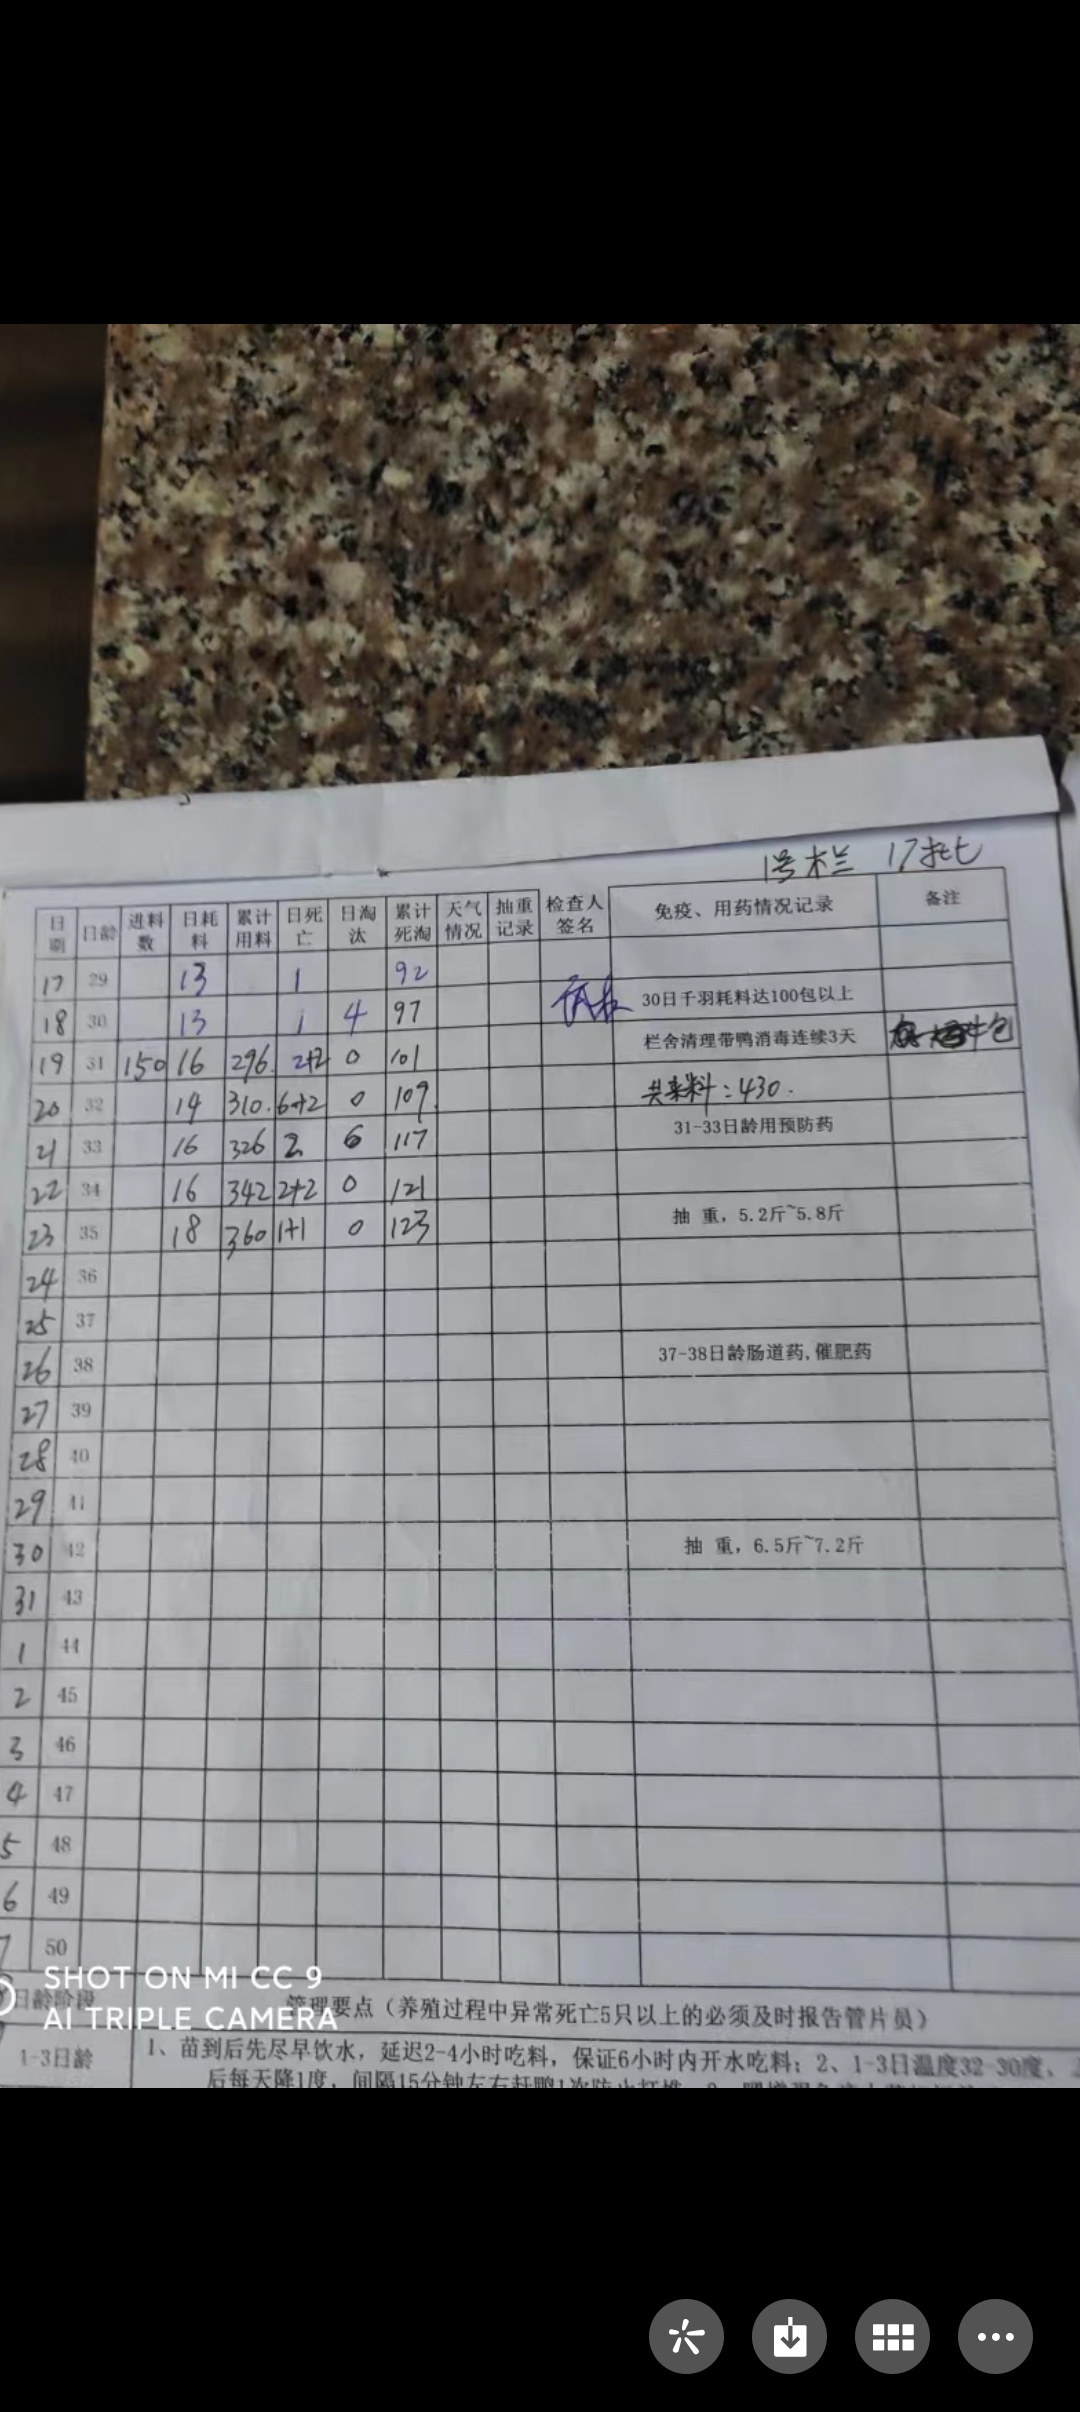 1号栏 17批
日期 日龄 进料数 日耗料 累计用料 日死亡 日淘汰 累计死淘 天气情况 抽重记录 检查人签名 免疫、用药情况记录 备注
17 29 13 1 92
18 30 13 1 4 97 30日千羽耗料达100包以上
19 31 150 16 296. 2+2 0 101 栏舍清理带鸭消毒连续3天 包
20 32 14 310. 6+2 0 109. 共来料:430.
21 33 16 326 2 6 117 31-33日龄用预防药
22 34 16 342 2+2 0 121
23 35 18 360 1+1 0 123 抽 重，5.2斤~5.8斤
24 36
25 37
26 38 37-38日龄肠道药,催肥药
27 39
28 40
29 41
30 42 抽 重，6.5斤~7.2斤
31 43
1 44
2 45
3 46
4 47
5 48
6 49
7 50
SHOT ON MI CC 9
AI TRIPLE CAMERA
日龄阶段 管理要点（养殖过程中异常死亡5只以上的必须及时报告管片员）
1-3日龄 1、苗到后先尽早饮水，延迟2-4小时吃料，保证6小时内开水吃料；2、1-3日温度32-30度，
后每天降1度，间隔15分钟左右赶鸭1次防止打堆